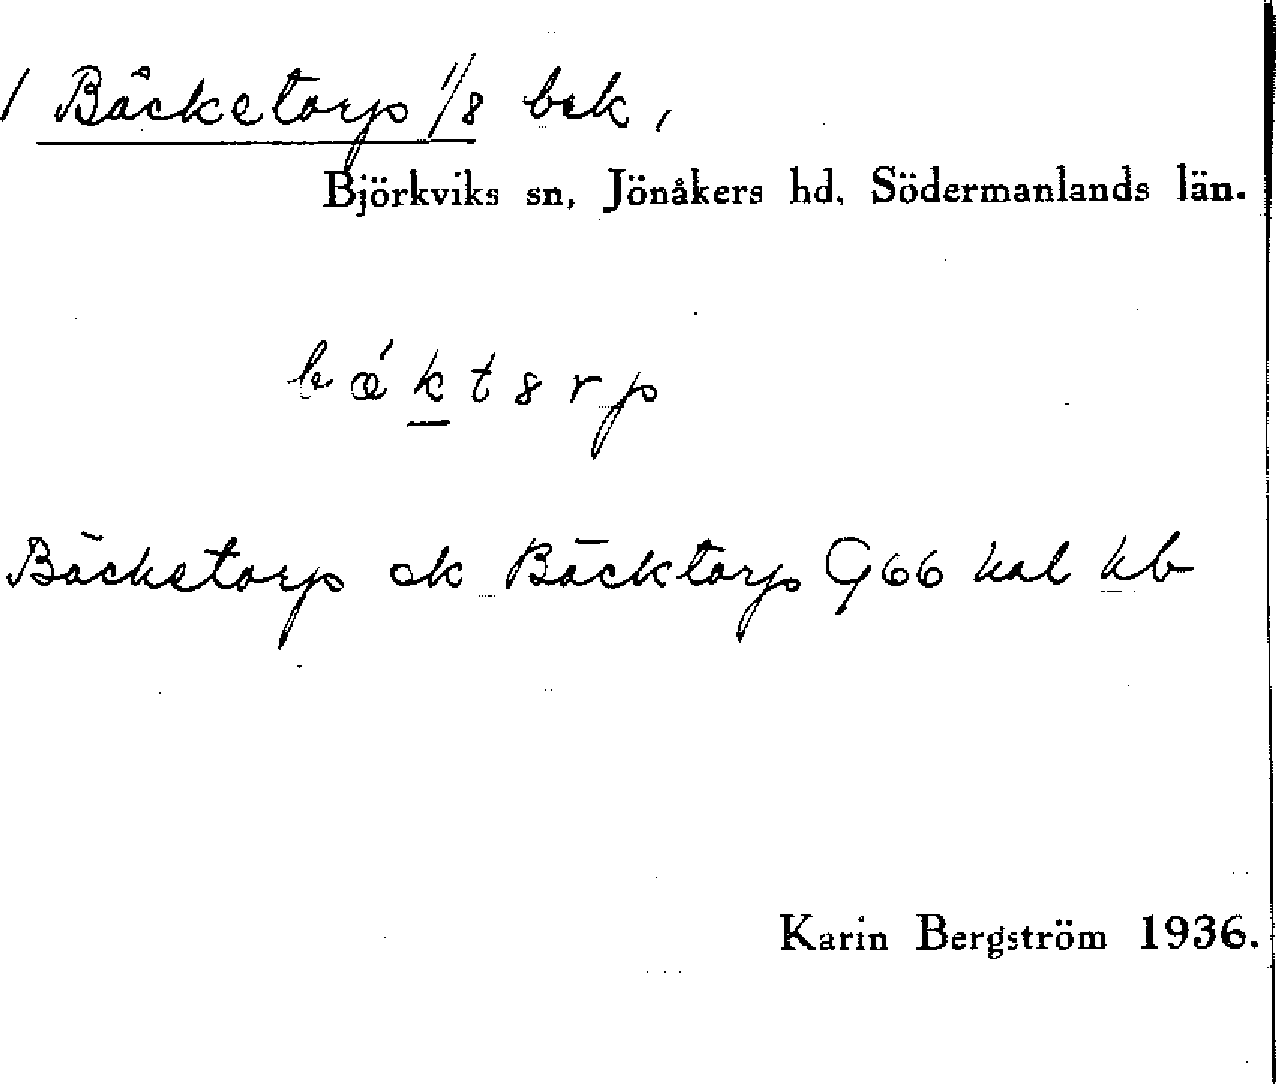 / Bäcketorp 1/8 bek,
Björkviks sn, Jönåkers hd, Södermanlands län.
bæ´ktɜrp
Bäcketorp ok Bäcktorp G66 kal kb
Karin Bergström 1936.